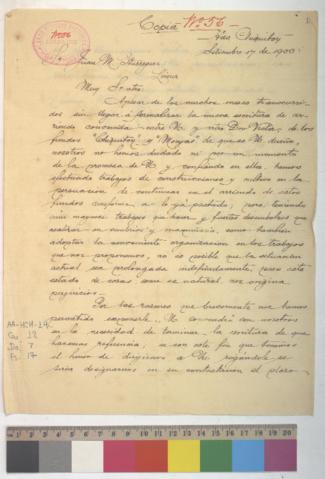 Copia Nº 56
Hda. Chiquitoy
Setiembre 17 de 1900.
Sr. Juan M.
Lima
Muy Sr. ntro.
Apesar de los muchos meses transcurri-
dos sin llegar á formalizar la nueva escritura de ar-
riendo convenida entre Ud. y Don de los
fundos "Chiquitoy" y "Mongas" de que es Ud. dueño,
nosotros no hemos dudado ni por un momento
de la promesa de Ud. y confiando en ella hemos
efectuado trabajos de construcciones y en la
persuacion de continuar en el arriendo de estos
fundos conforme a lo ya pactado; pero teniendo
aun mayores trabajos que hacer y fuertes desembolsos que
realizar en sembrios y maquinaria, como tambien
adoptar la conveniente organizacion en los trabajos
que nos proponemos, no es posible que la situacion
actual sea prolongada indefinidamente, pues este
estado de cosas, como es natural, nos origina
perjuicios.
Por las razones que brevemente nos hemos
permitido exponerle, Ud. convendrá con nosotros
en la necesidad de terminar la escritura de que
hacemos referencia, y con este fin que tenemos
el honor de dirigirnos a Ud. rogándole se
sirva designarnos en su contestacion el plazo
AA-HCH-19
Ca 18
Do 7
Fs. 17
1 2 3 4 5 6 7 8 9 10 11 12 13 14 15 16 17 18 19 20